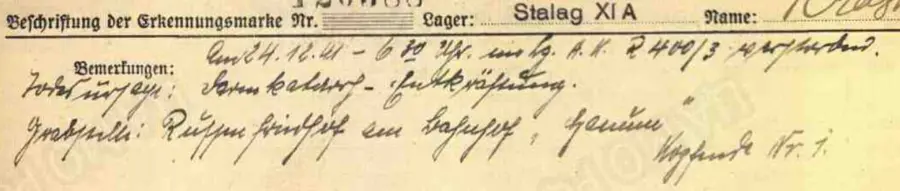 Beschriftung der Erkennungsmarke Nr. Lager: Stalag XI A Name:
Bemerkungen: Am 24.12.41 - 6 30 Uhr. im A. K. Z 400/3 verstorben.
Todesursache: Darmkatarrh - Entkräftung.
Grabstelle: Russenfriedhof am Bahnhof "
Kopfende Nr. 1.